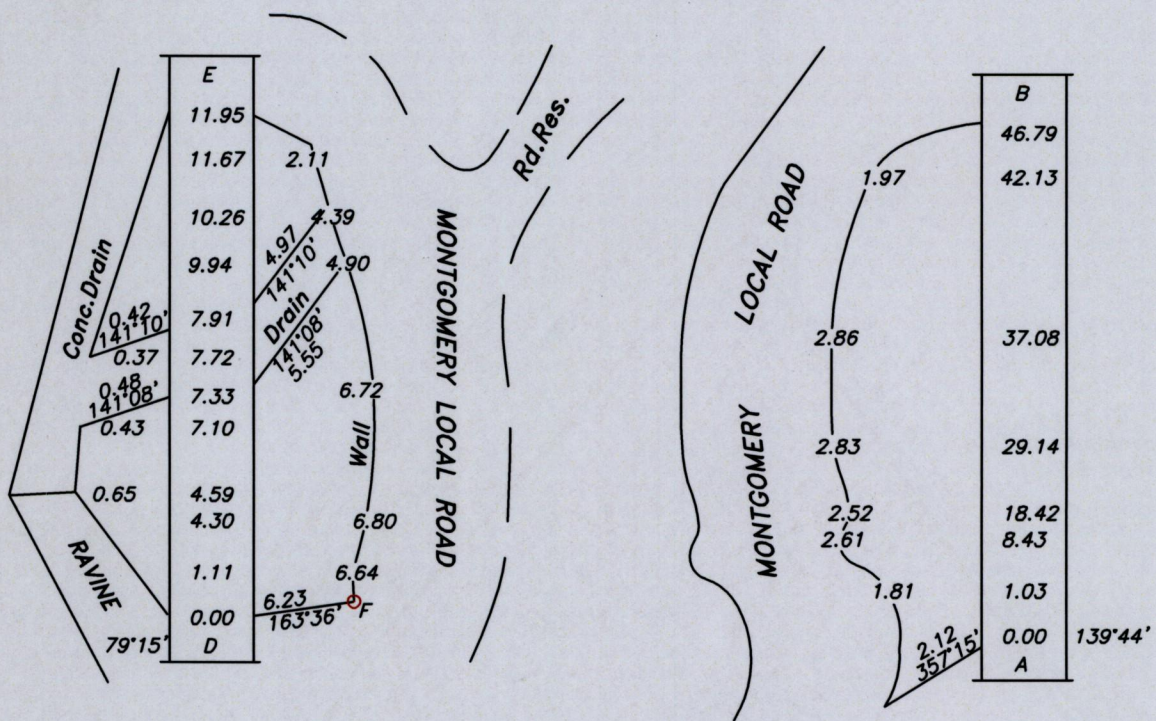 E
11.95
11.67
10.26
9.94
7.91
7.72
7.33
7.10
4.59
4.30
1.11
0.00
D
79°15'
Conc.Drain
0.42
141°10'
0.37
0.48
141°08'
0.43
0.65
RAVINE
2.11
4.39
4.97
141°10'
4.90
Drain
141°08'
5.55
6.72
Wall
6.80
6.64
6.23
163°36'
F
MONTGOMERY LOCAL ROAD
Rd.Res.
MONTGOMERY LOCAL ROAD
1.97
2.86
2.83
2.52
2.61
1.81
2.12
357°15'
B
46.79
42.13
37.08
29.14
18.42
8.43
1.03
0.00
A
139°44'